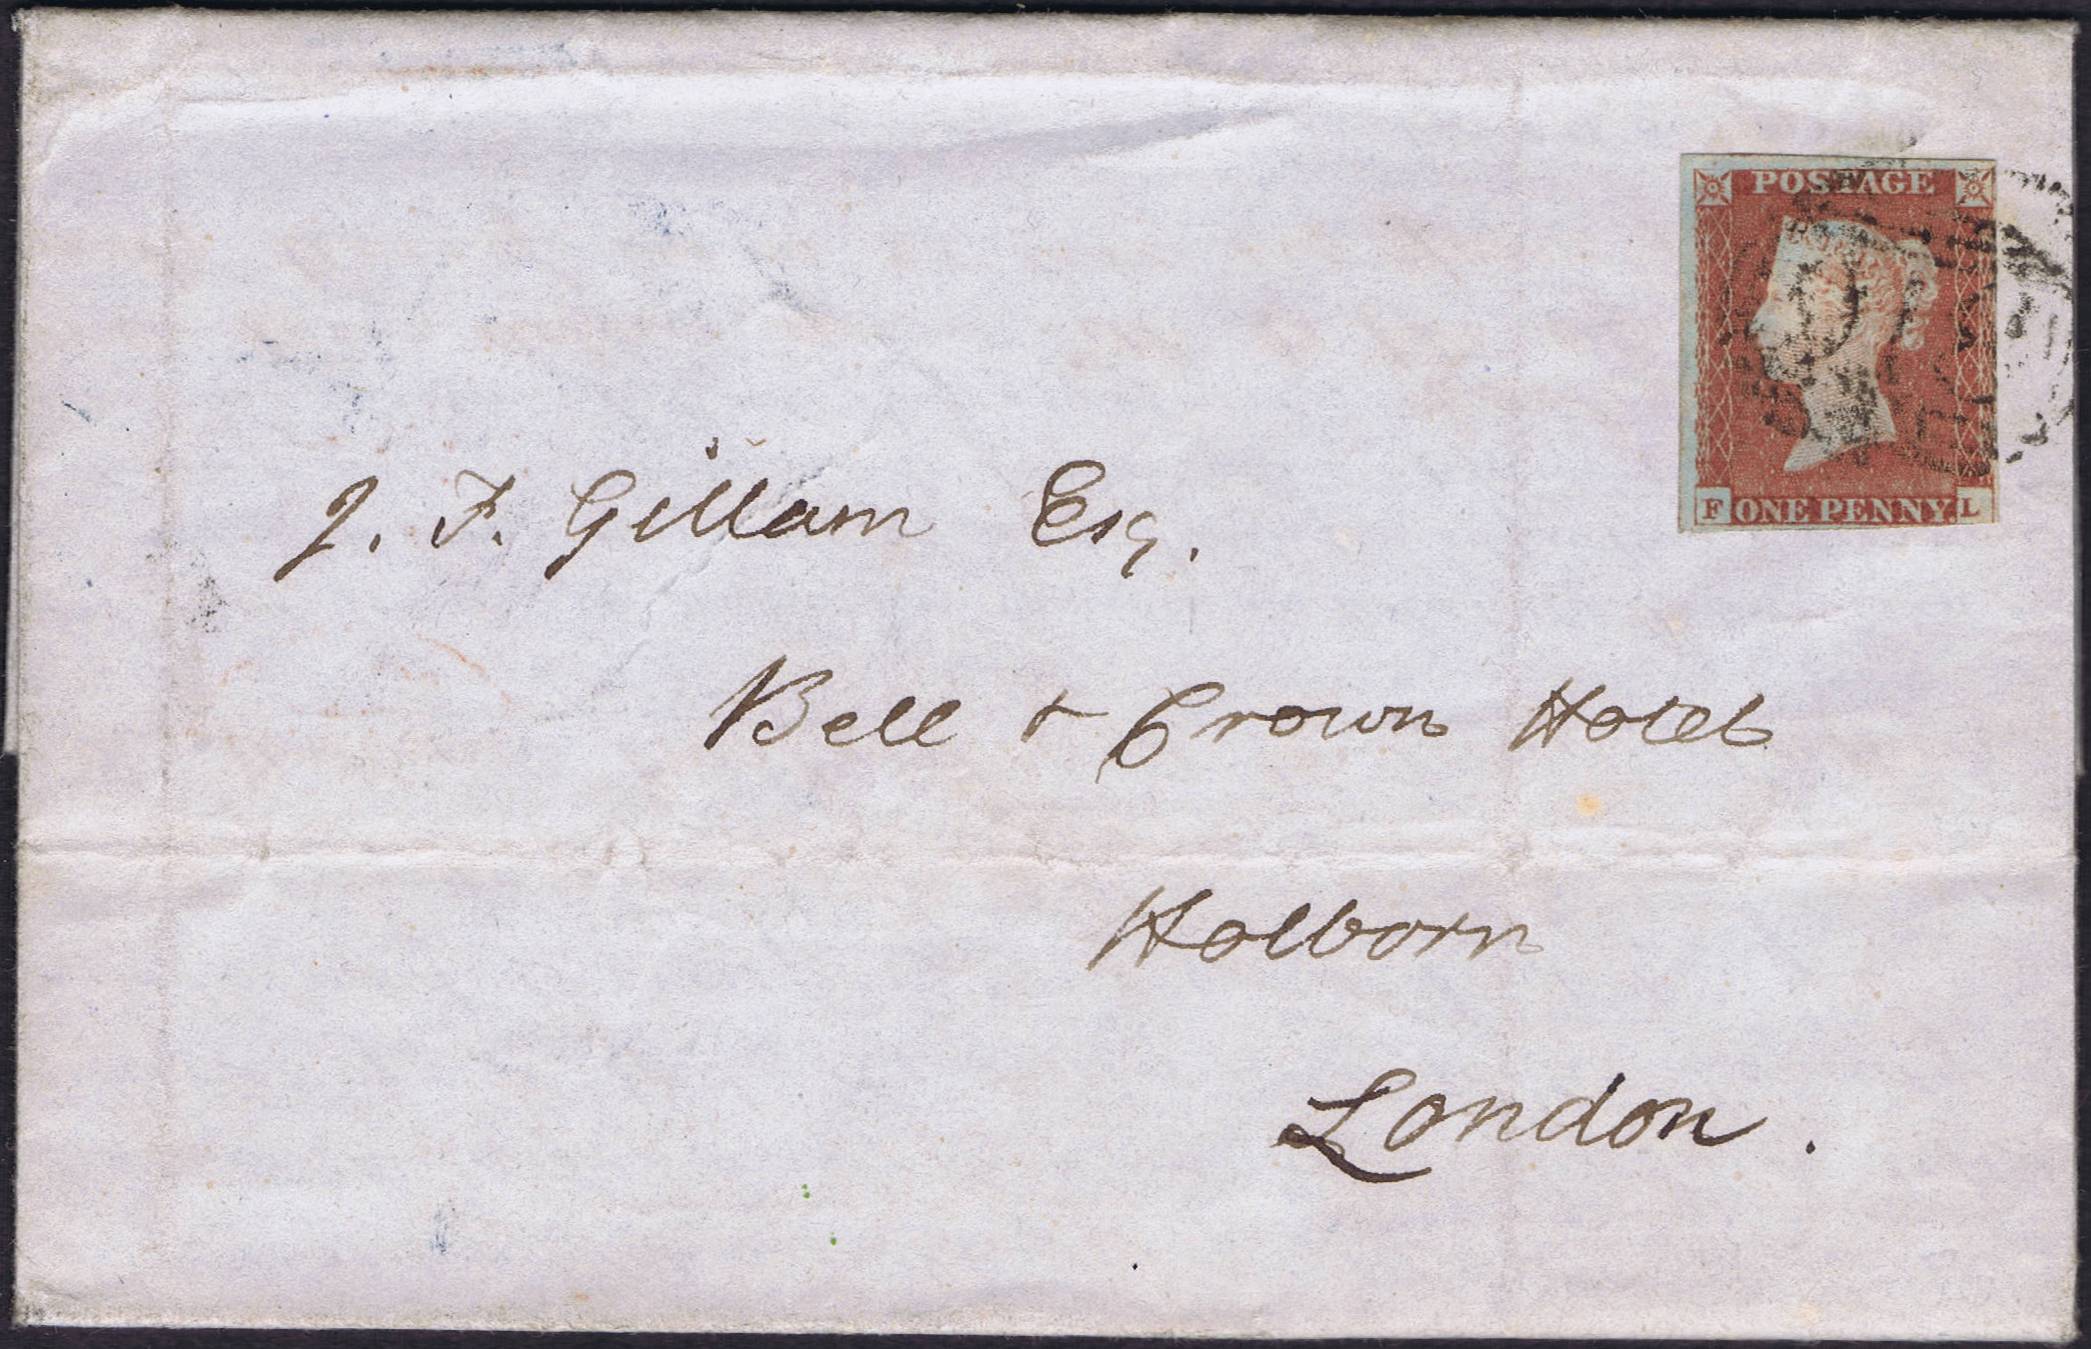 POSTAGE
F ONE PENNY. L
J. F. Gillam Esq.
Bell & Crown Hotel
Holborn
London.